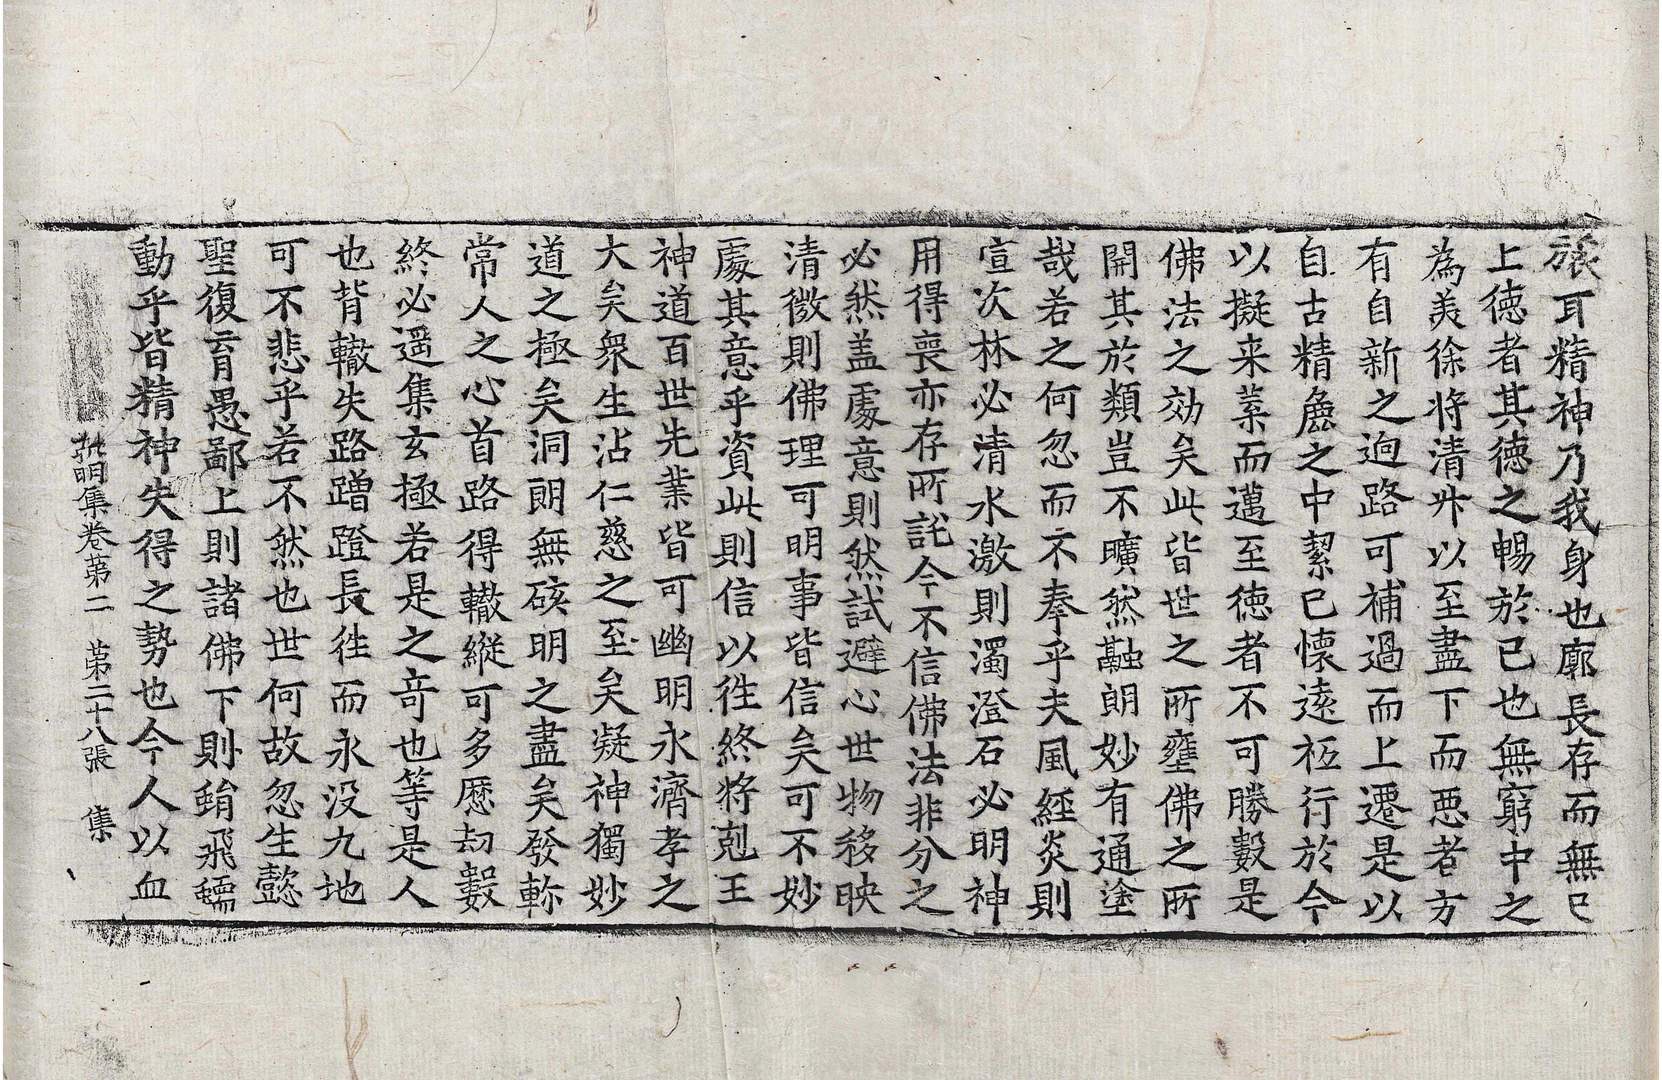 旅耳精神乃我身也廓長存而無已
上徳者其徳之暢於已也無窮中之
為美徐將清升以至盡下而惡者方
有自新之逈路可補過而上遷是以
自古精麁之中絜已懷遠祗行於今
以擬来葉而邁至徳者不可勝數是
佛法之効矣此皆世之所壅佛之所
開其於類豈不曠然融朗妙有通塗
哉若之何忽而不奉乎夫風經炎則
暄次林必清水激則濁澄石必明神
用得喪亦存所託今不信佛法非分之
必然盖處意則然試避心世物移映
清微則佛理可明事皆信矣可不妙
處其意乎資此則信以徃終將剋王
神道百世先業皆可幽明永濟孝之
大矣衆生沾仁慈之至矣凝神獨妙
道之極矣洞朗無硋明之盡矣發軫
常人之心首路得轍縱可多歴劫數
終必遥集玄極若是之竒也等是人
也背轍失路蹭蹬長徃而永没九地
可不悲乎若不然也世何故忽生懿
聖復育愚鄙上則諸佛下則蜎飛蠕
動乎皆精神失得之勢也今人以血
弘明集卷第二 第二十八張 集